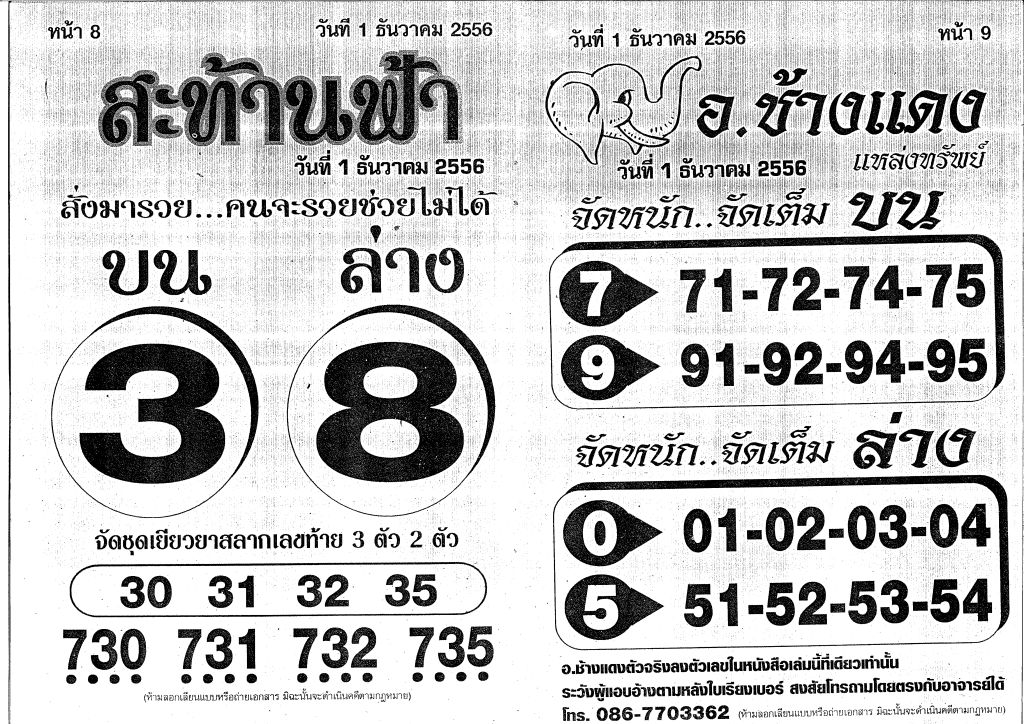 หน้า 8
วันที่ 1 ธันวาคม 2556
สะท้านฟ้า
วันที่ 1 ธันวาคม 2556
สั่งมารวย...คนจะรวยช่วยไม่ได้
บน ล่าง
3 8
จัดชุดเยียวยาสลากเลขท้าย 3 ตัว 2 ตัว
30 31 32 35
730 731 732 735
(ห้ามลอกเลียนแบบหรือถ่ายเอกสาร มิฉะนั้นจะดำเนินคดีตามกฎหมาย)
วันที่ 1 ธันวาคม 2556
หน้า 9
อ.ช้างแดง
แหล่งทรัพย์
วันที่ 1 ธันวาคม 2556
จัดหนัก..จัดเต็ม บน
7 71-72-74-75
9 91-92-94-95
จัดหนัก..จัดเต็ม ล่าง
0 01-02-03-04
5 51-52-53-54
อ.ช้างแดงตัวจริงลงตัวเลขในหนังสือเล่มนี้ที่เดียวเท่านั้น
ระวังผู้แอบอ้างตามหลังใบเรียงเบอร์ สงสัยโทรถามโดยตรงกับอาจารย์ได้
โทร. 086-7703362 (ห้ามลอกเลียนแบบหรือถ่ายเอกสาร มิฉะนั้นจะดำเนินคดีตามกฎหมาย)